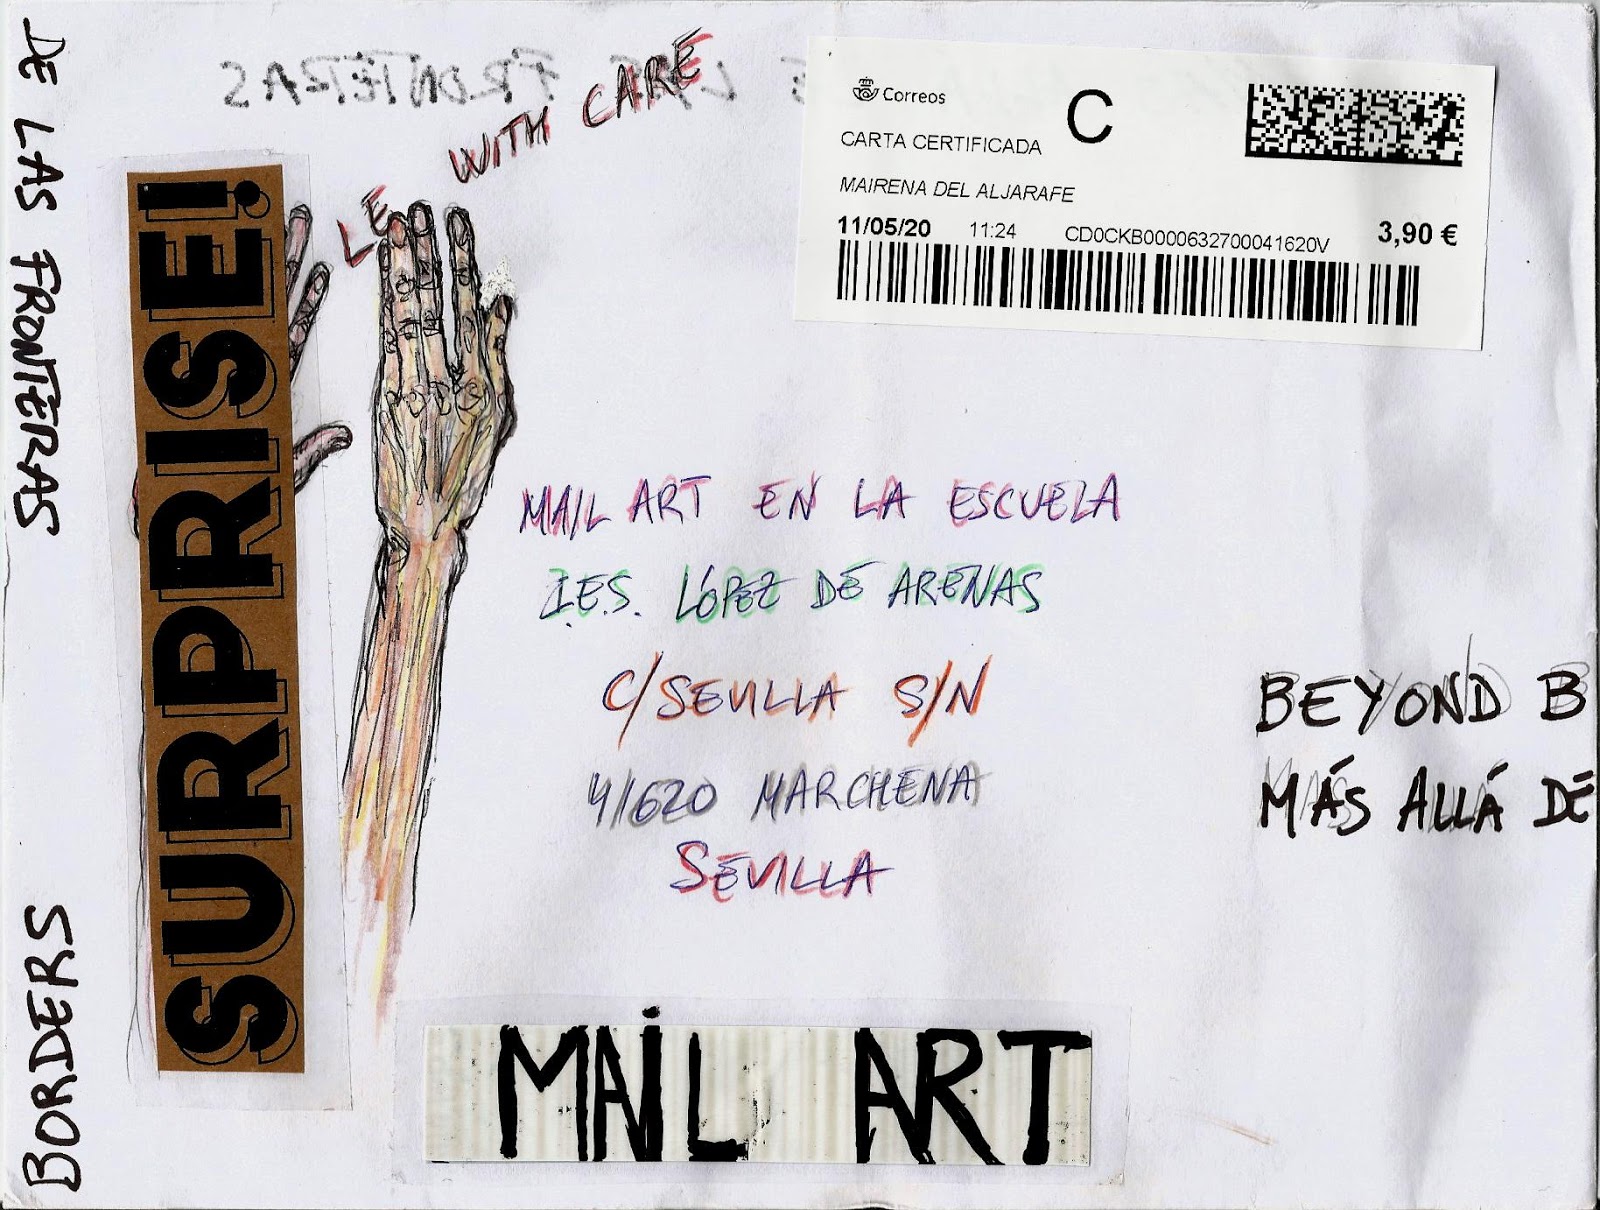 DE LAS FRONTERAS
BORDERS
LAS FRONTERAS
SURPRISE!
LE WITH CARE
Correos
C
CARTA CERTIFICADA
MAIRENA DEL ALJARAFE
11/05/20 11:24 CD0CKB0000632700041620V 3,90 €
MAIL ART EN LA ESCUELA
I.E.S. LÓPEZ DE ARENAS
C/SEVILLA S/N
41620 MARCHENA
SEVILLA
BEYOND B
MÁS ALLÁ DE
MAIL ART